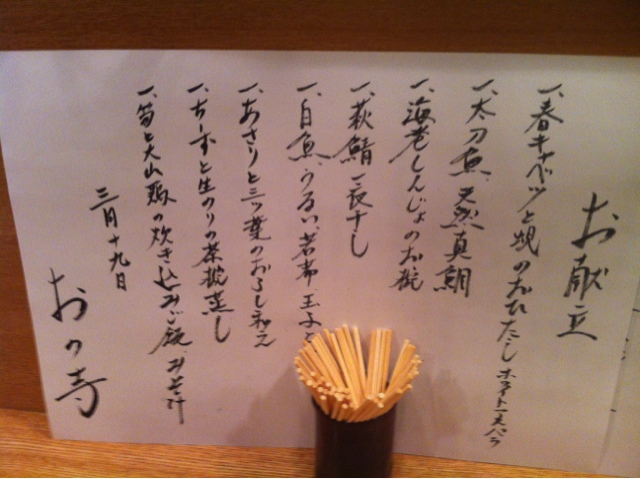 お献立
一、春キャベツと蜆のおひたし ホワイトアスパラ
一、太刀魚、天然真鯛
一、海老しんじょのお椀
一、萩鯖一夜干し
一、白魚、うるい、若布 玉子と
一、あさりと三ッ葉のおろし和え
一、ちーずと生のりの茶椀蒸し
一、筍と大山鶏の炊き込みご飯、みそ汁
三月十九日
おのの寺